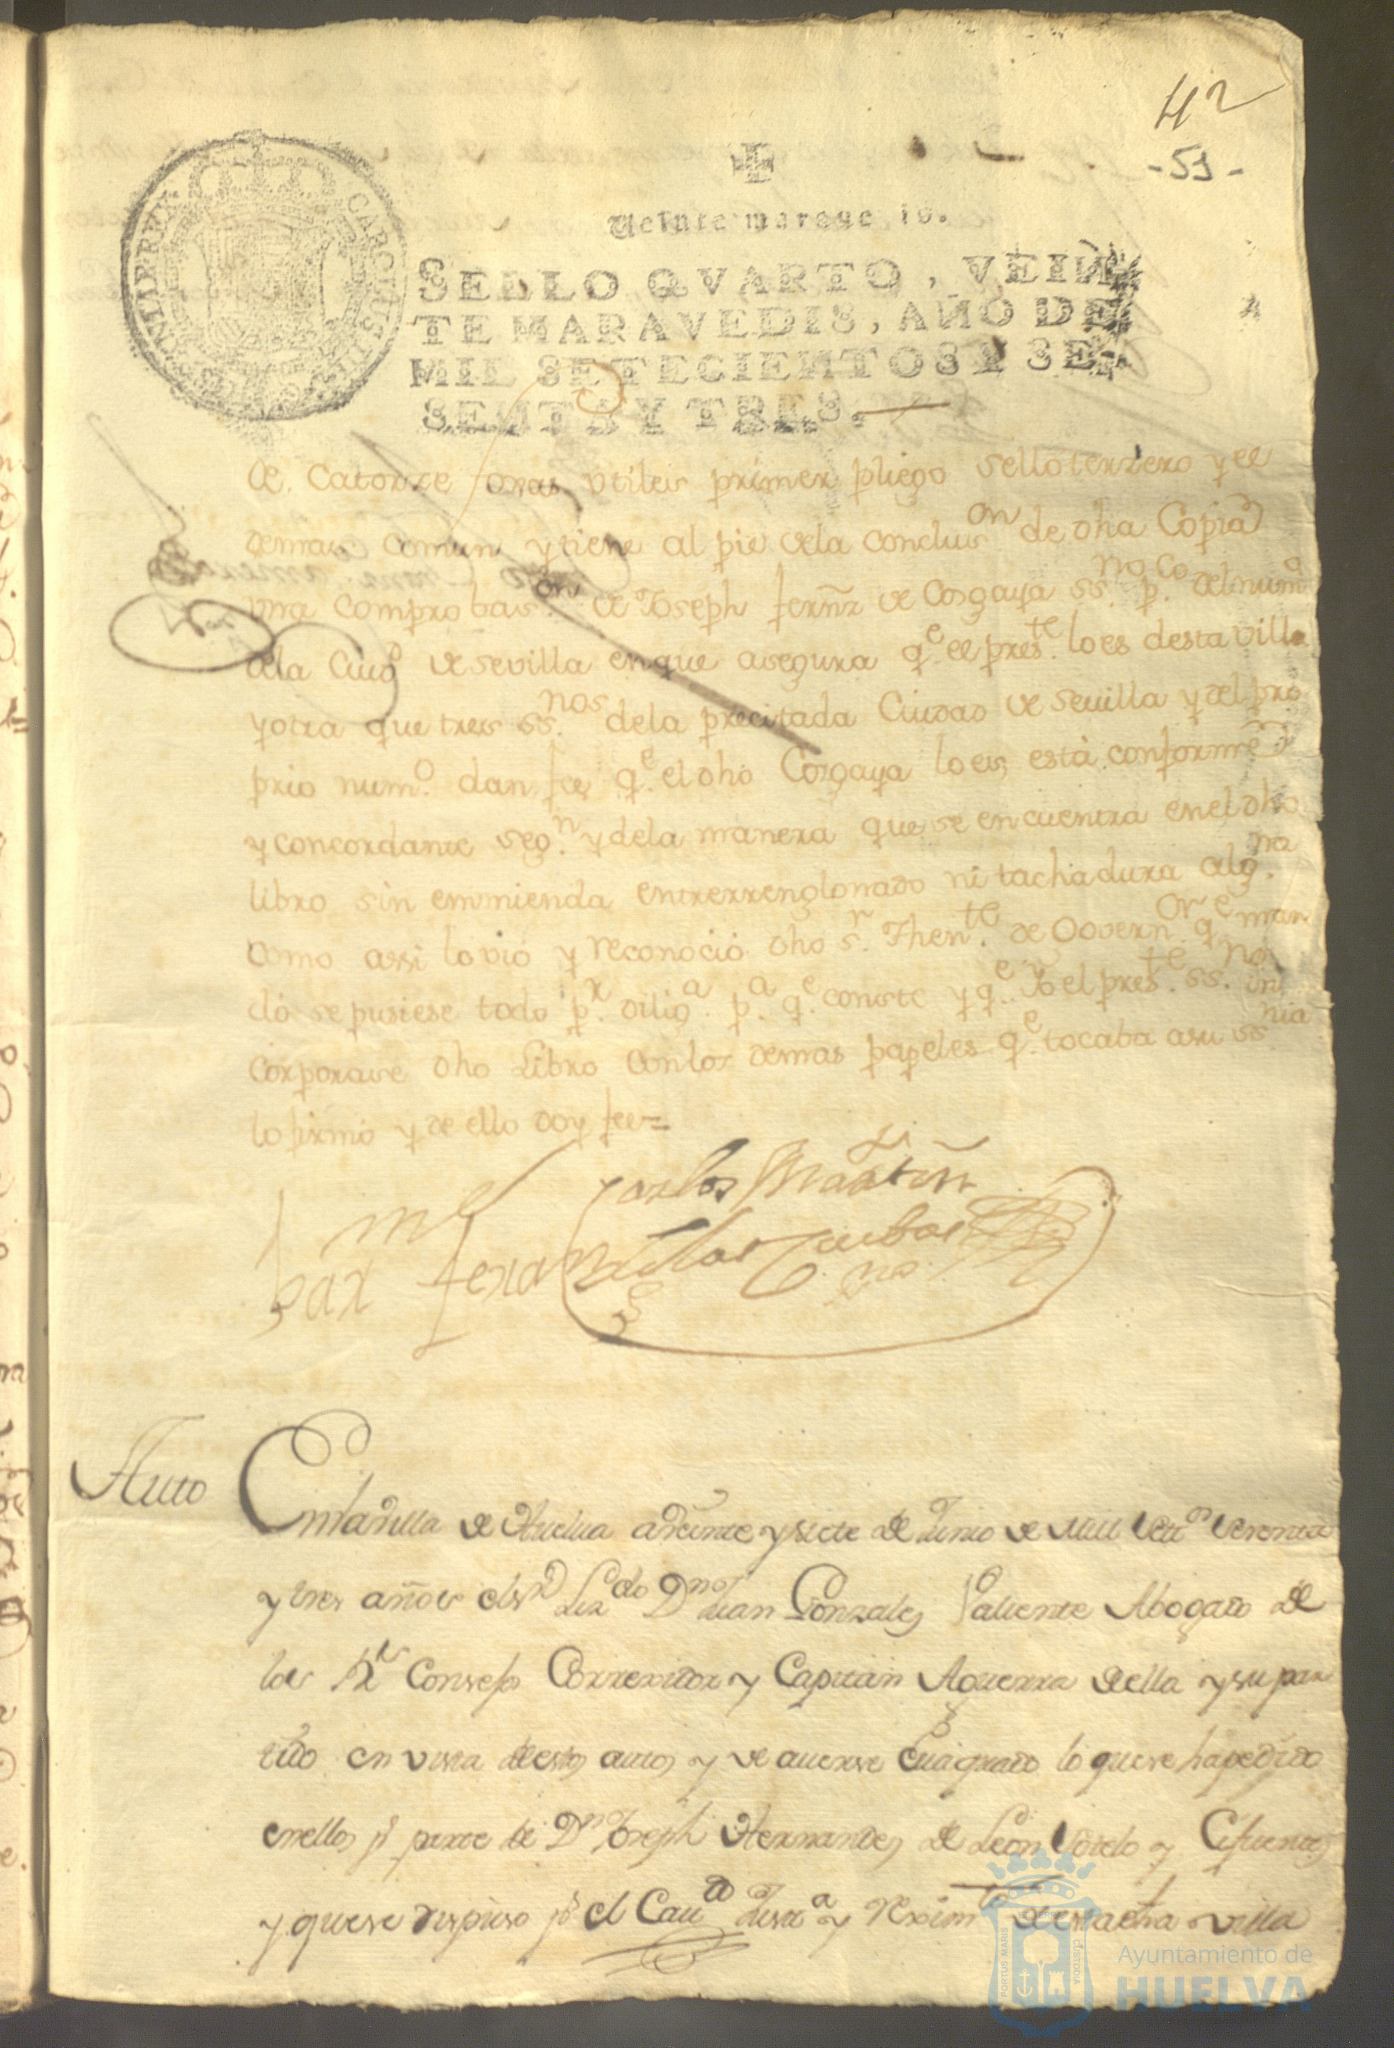 42
-51-
Veinte maraue is.
SELLO QVARTO, VEIN
TE MARAVEDIS, AÑO DE
MIL SETECIENTOS Y SE
SENTA Y TRES.
CAROLUS III
de Catorze foxas vtiles primer pliego sello terzero y el
demas comun y tiene al pie dela concluson de dha Copia
vna comprobason de Joseph ferñz de Cosgaya ssno pco del numo
dela Ciud de sevilla en que asegura qe el preste lo es desta villa
y otra que tres ssnos dela precitada Ciudad de Sevilla y del pro
prio numo dan fee qe el dho Cosgaya lo es, està conforme
y concordante segn y dela manera que se encuentra enel dho
libro sin enmienda entrerrenglonado ni tachadura algna
como assi lo vio y reconociò dho sr Thente de Governor qe man
dò se pusiese todo pr dilига pa qe conste y qe Yo el preste ssno in
corporase dho Libro con los demas papeles qe tocaba a su ssnia
lo firmò y de ello doy fee=
Carlos Martin
Auto
En la villa de Huelua a veinte y siete de Junio de mill settos sesenta
y tres años el sr Lizdo Dn Juan Gonzales Valiente Abogado de
los Rs Consejos Correxidor y Capitan Aguerra de ella y su par
tido en vista de estos autos y de auerse euaquado lo que se ha pedido
en ellos pr parte de Dn Joseph Hernandes de Leon Sotelo y Cifuentes
y que se dispuso pr el Cauo Justa y Reximto de esta dha villa
Ayuntamiento de
HUELVA
PORTUS MARIS
CUSTODIA